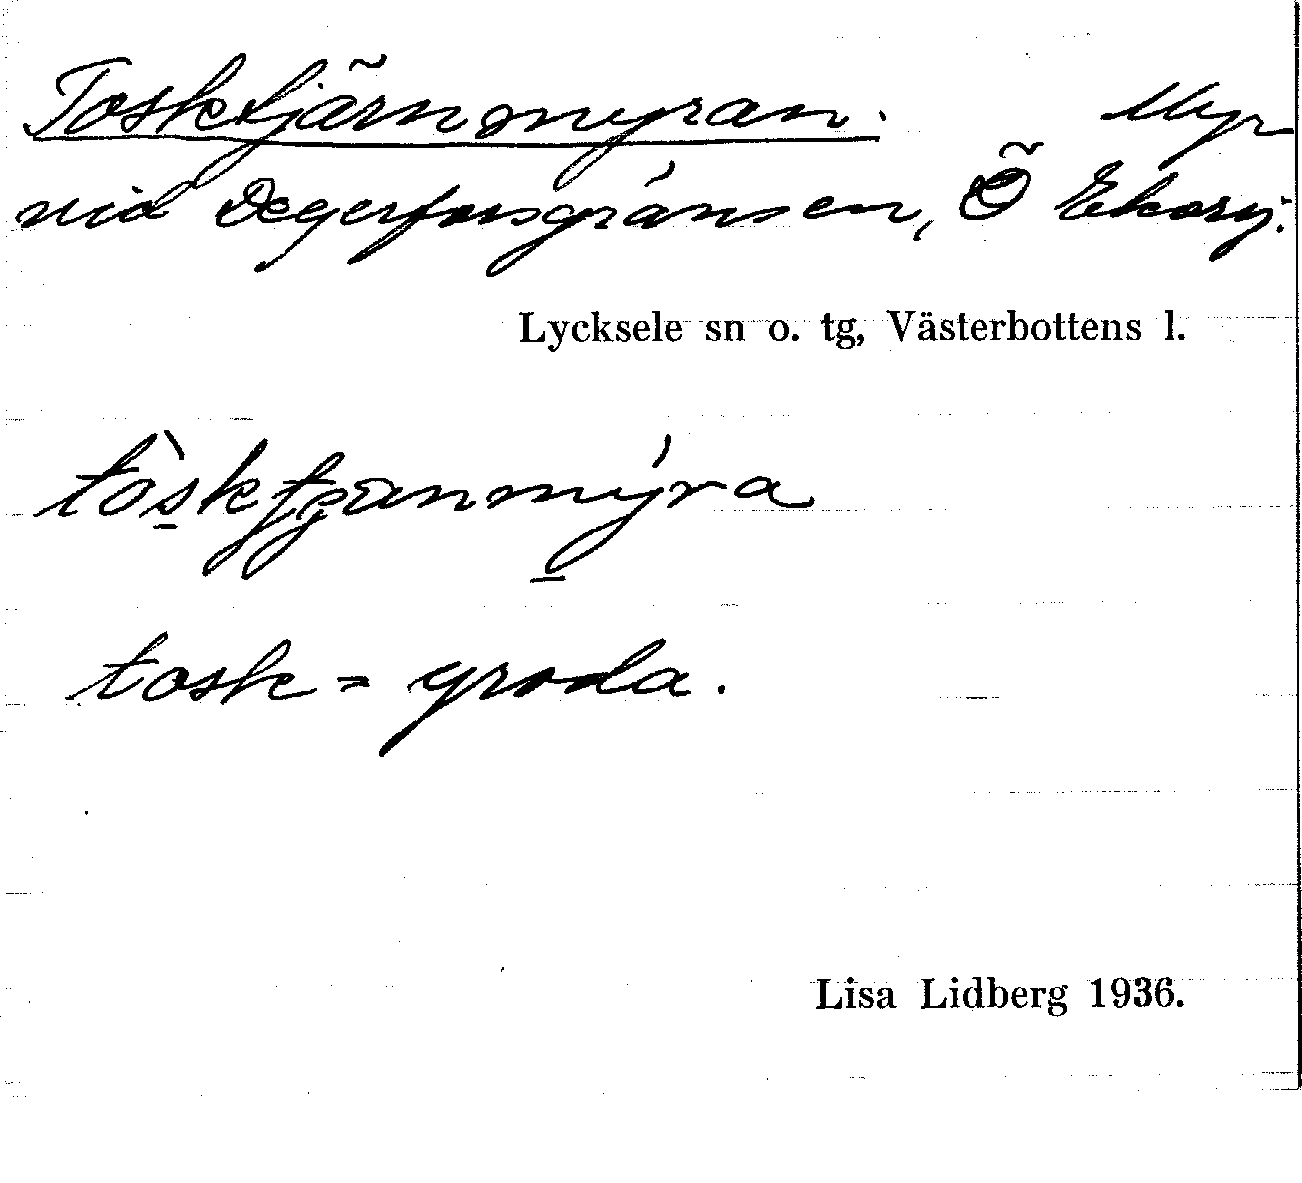 Tosktjärnmyran. Myr
vid Degerforsgränsen, Ö Ekorrj.
Lycksele sn o. tg, Västerbottens l.
tosk = groda.
Lisa Lidberg 1936.